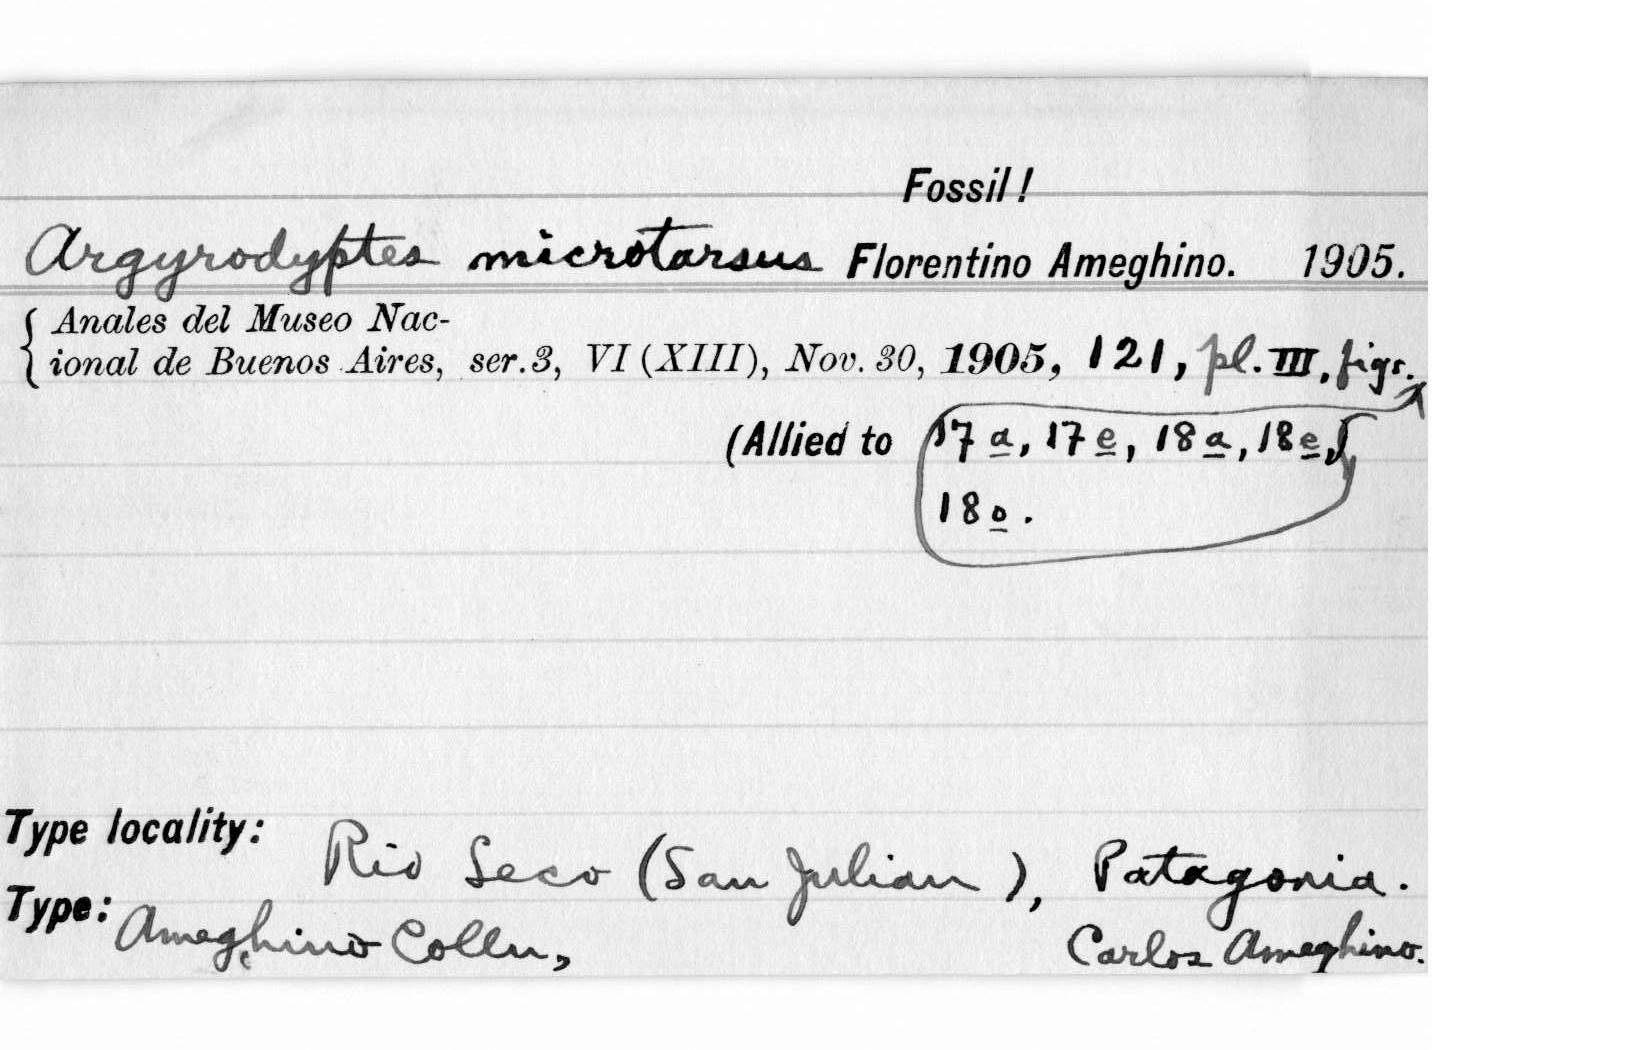 Fossil!
Argyrodyptes microtarsus Florentino Ameghino. 1905.
Anales del Museo Nac-
ional de Buenos Aires, ser. 3, VI (XIII), Nov. 30, 1905, 121, pl. III, figs.
(Allied to 17a, 17e, 18a, 18e,
18o.
Type locality: Rio Seco (San Julian), Patagonia.
Type: Ameghino Colln, Carlos Ameghino.